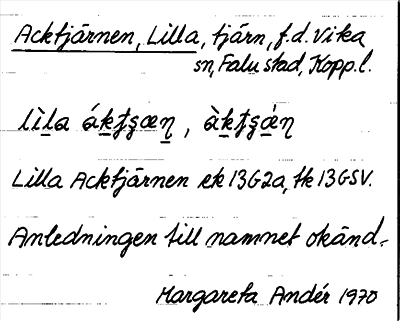 Acktjärnen, Lilla, tjärn, f.d. Vika
sn, Falu stad, Kopp.l.
Lilla Acktjärnen ek 13G2a, tk 13GSV.
Anledningen till namnet okänd.
Margareta Andér 1970